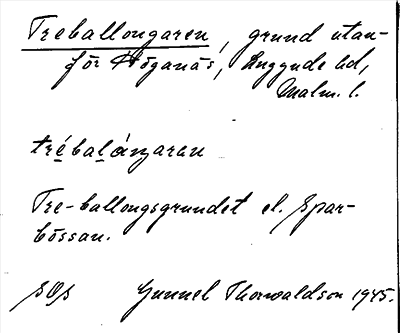 Treballongaren, grund utan-
för Höganäs, Luggude hd,
Malm. l.
trébaláŋaren
Tre-ballongsgrundet el. Spar-
bössan.
SOS Gunnel Thorwaldson 1945.